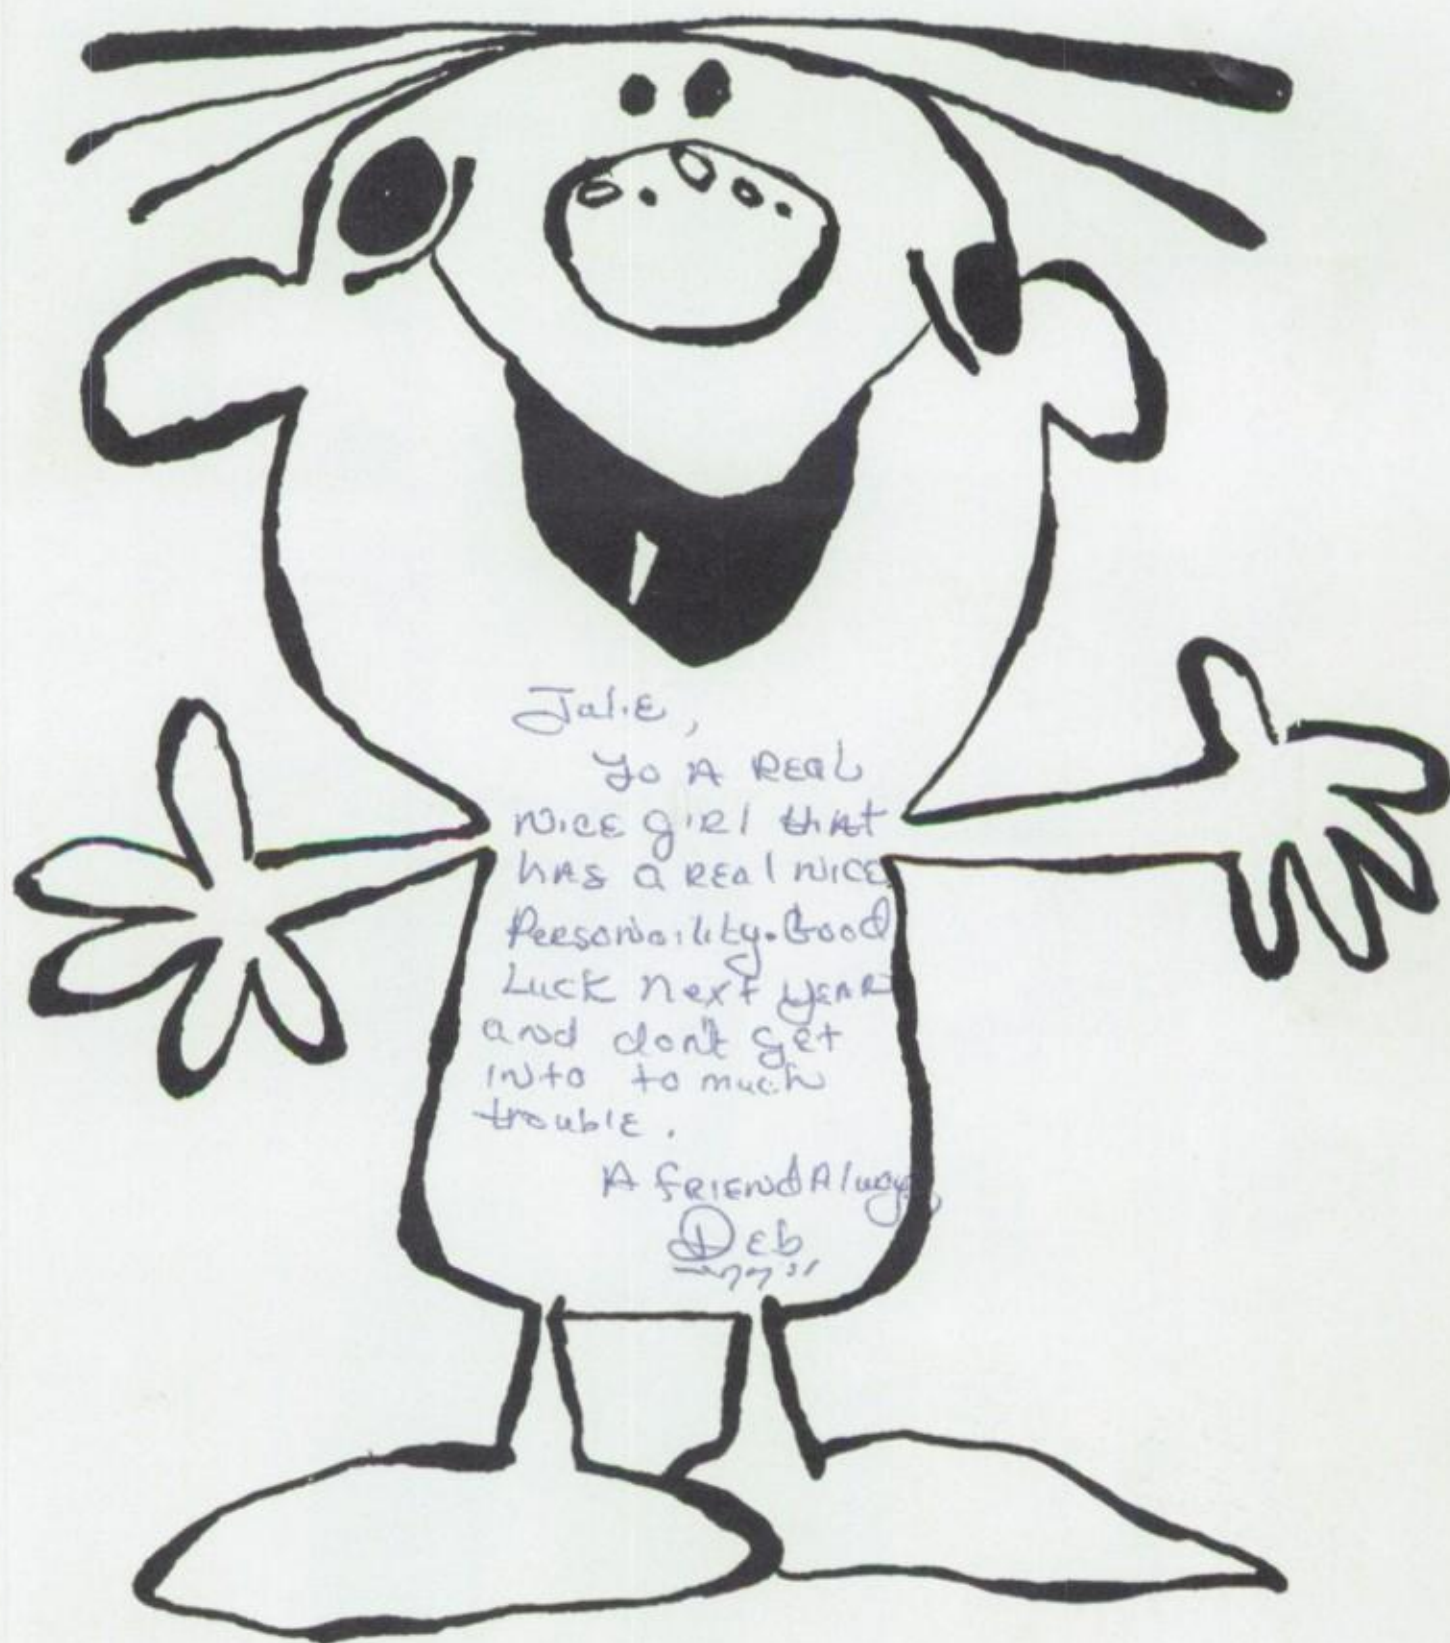 Julie,
To A REAL
NICE giRl that
hAS a REAl NICE
Personaility. Good
Luck next yEAR
and don't get
INto to much
troublE.
A FRIENd Always
DEb